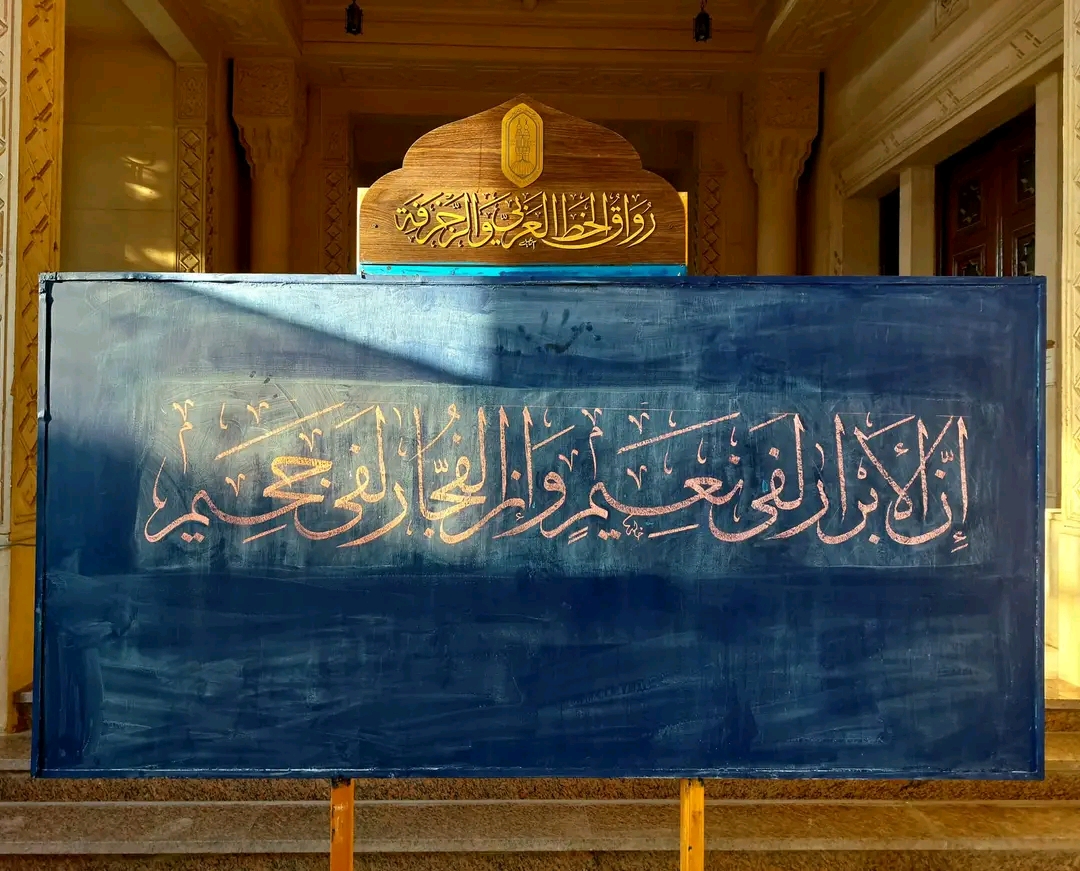 رُوَاقُ الخَطِّ العَرَبِيِّ وَالزَّخْرَفَةِ
إِنَّ الأَبْرَارَ لَفِى نَعِيمٍ وَإِنَّ الفُجَّارَ لَفِى جَحِيمٍ